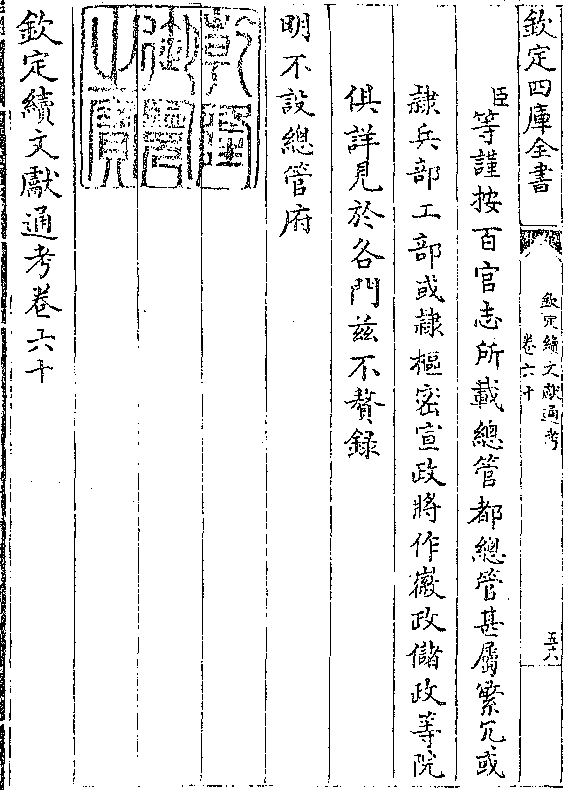 欽定四庫全書
欽定續文獻通考
卷六十
五六
臣等謹按百官志所載總管都總管甚屬繁冗或
隸兵部工部或隸樞密宣政將作徽政儲政等院
俱詳見於各門兹不贅録
明不設總管府
乾隆御覽之寶
欽定續文獻通考卷六十